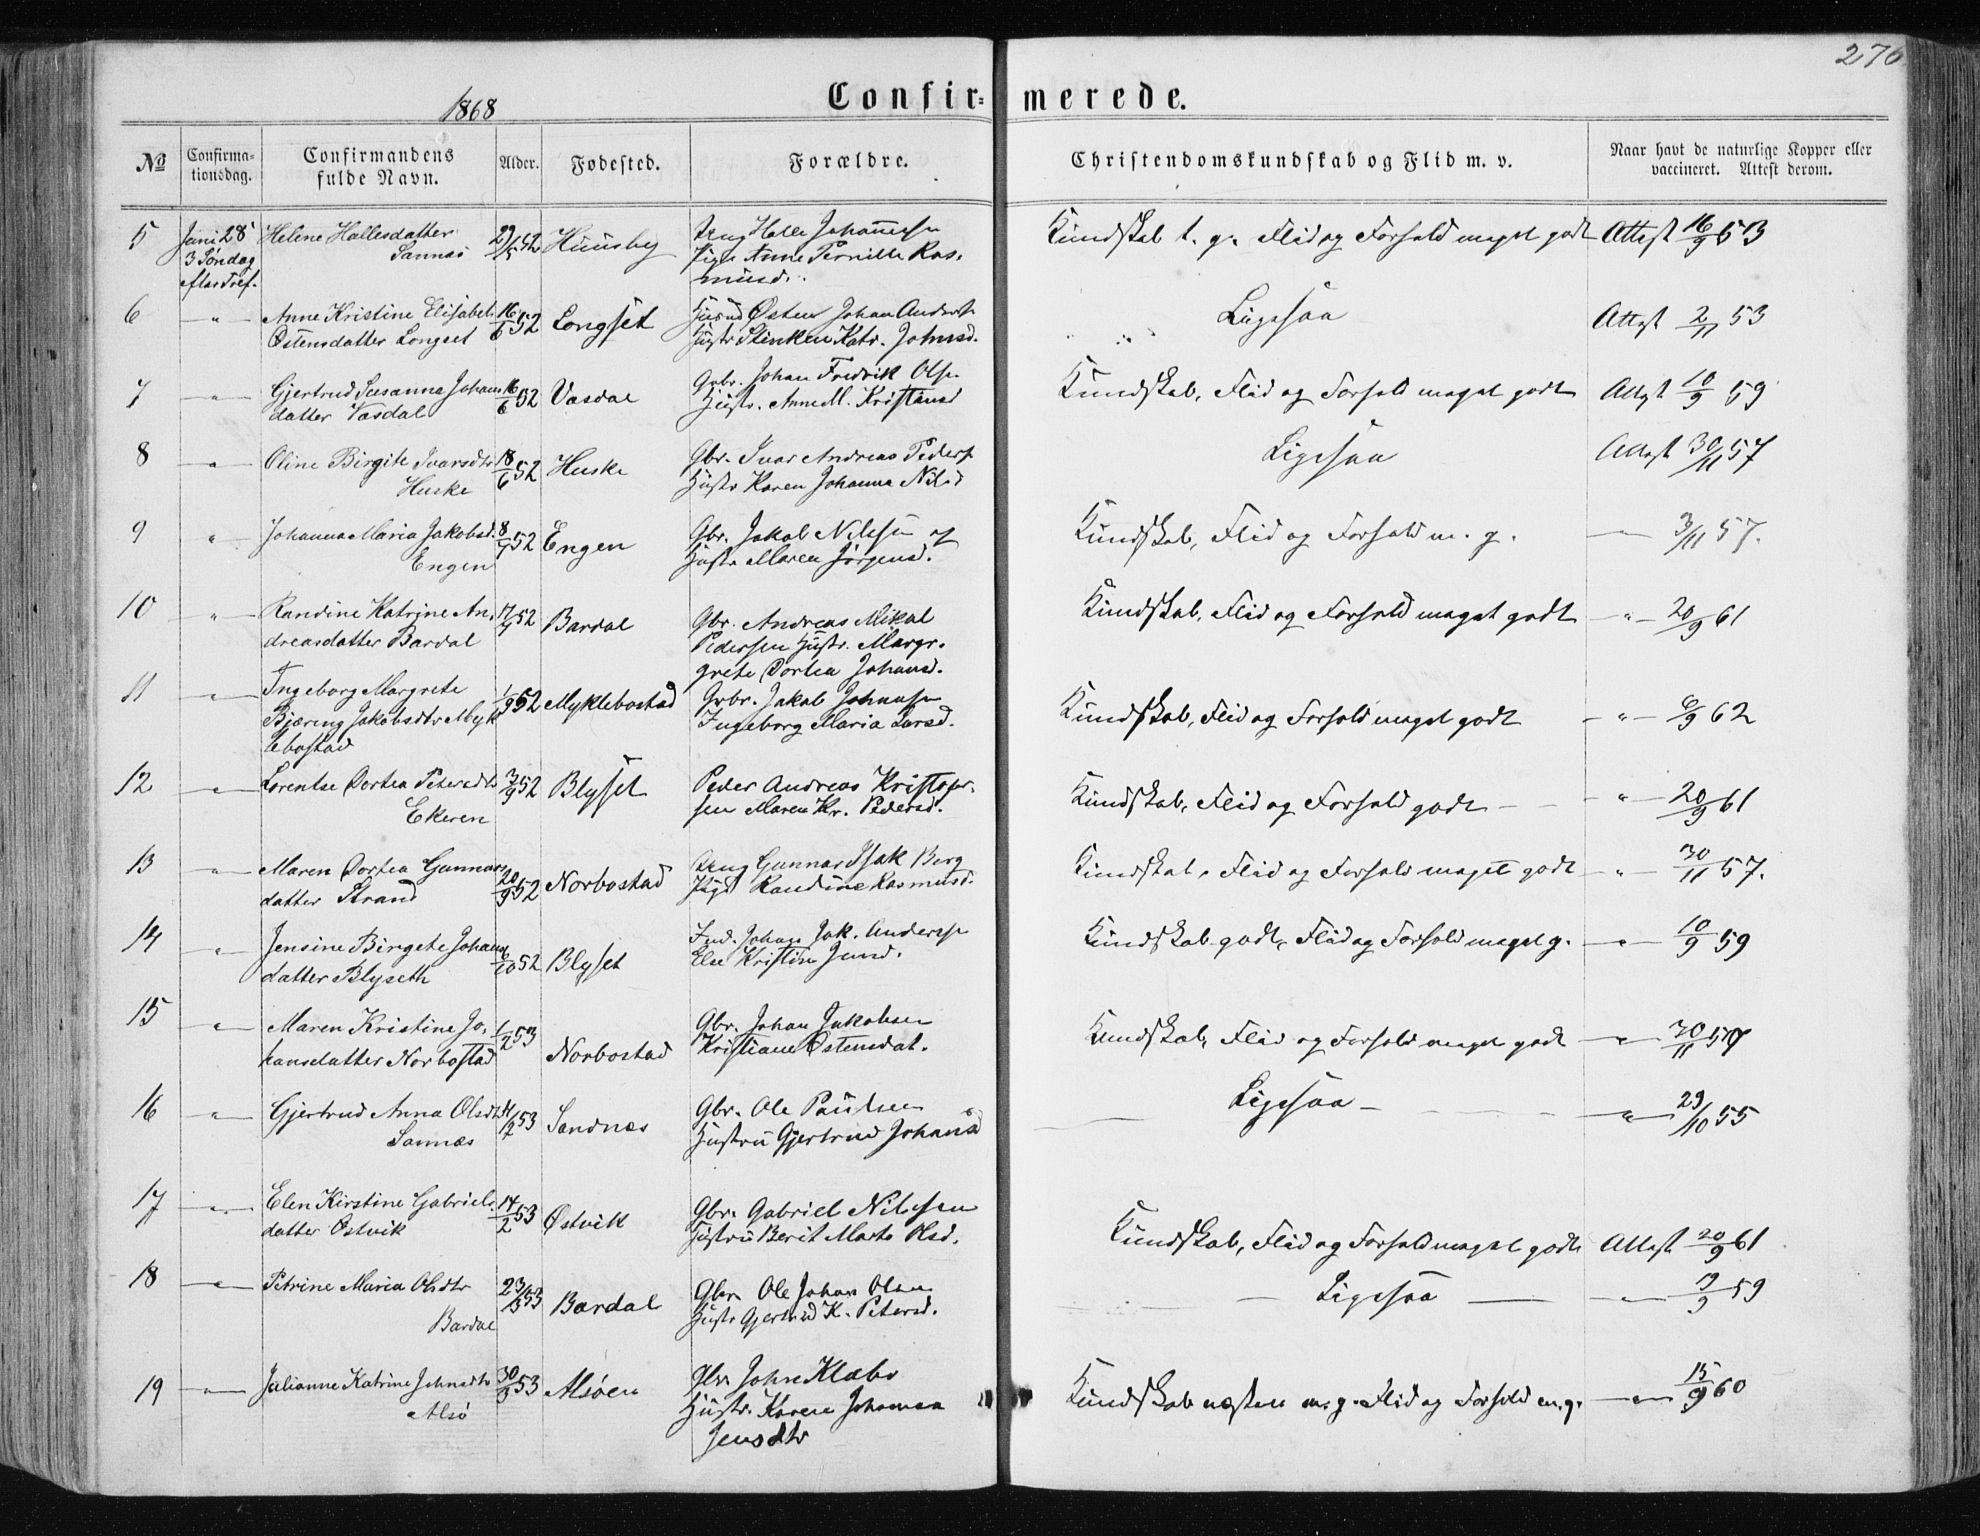 276
1868
Confir= merede.
No
Confirma=
tionsdag.
Confirmandens
fulde Navn.
Alder.
Fødested.
Forældre.
Christendomskundskab og Flid m. v.
Naar havt de naturlige Kopper eller
vaccineret. Attest derom.
5 Juni 28 Helene Hallesdatter 52 Huusby Halle Johannesen Kundskab t. g. Flid og Forhold meget godt Attest 16/9 53
3 Søndag Sannæs Pige Anne Pernille Ras-
efter Tref. musd.
6 " Anne Kristine Elisabet 16/6 52 Longset Østen Johan Anders Ligesaa Attest 2/11 53
Østensdatter Longset Hustr Katr. Johnsd.
7 " Gjertrud Susanna Johans 16/6 52 Vasdal Gbr. Johan Fredrik Ols. Kundskab, Flid og Forhold meget godt Attest 10/9 59
datter Vasdal Hustr. Anne M. Kristensd
8 " Oline Birgite Ivarsdtr 18/6 52 Huske Gbr. Ivar Andreas Peders Ligesaa Attest 30/11 57
Huske Hustr Karen Johanna Nilsd
9 " Johanna Maria Jakobsd. 8/7 52 Engen Gbr. Jakob Nilsen og Kundskab, Flid og Forhold m. g. — 3/11 57.
Engen Hustr Maren Jørgensd.
10 " Randine Katrine An- 52 Bardal Gbr. Andreas Mikal Kundskab, Flid og Forhold meget godt " 20/9 61
dreasdatter Bardal Pedersen Hustr. Margr-
grete Dortea Johansd.
11 " Ingeborg Margrete 1/9 52 Myklebostad Gbr. Jakob Johansen Kundskab, Flid og Forhold meget godt " 6/9 62
Bjæring Jakobsdtr Myk Ingeborg Maria Larsd.
lebostad
12 " Lorentse Dortea Petersdtr 3/9 52 Blyset Peder Andreas Kristofer- Kundskab, Flid og Forhold godt — " 20/9 61
Ekeren sen Maren Kr. Pedersd.
13 " Maren Dortea Gunnars 20/9 52 Norbostad Gunnar Isak Berg Kundskab, Flid og Forhold meget godt " 30/11 57.
datter Strand Pige Randine Rasmusd.
14 " Jensine Birgete Johans 52 Blyset Ind. Johan Jak. Anders Kundskab godt, Flid og Forhold meget g. " 10/9 59
datter Blyseth Else Kristine Jensd.
15 " Maren Kristine Jo- 1/2 53 Norbostad Gbr. Johan Jakobsen Kundskab, Flid og Forhold meget godt " 30/11 57
hansdatter Norbostad Kristiane Østensdat.
16 " Gjertrud Anna Olsdtr 53 Sandnæs Gbr. Ole Paulsen Ligesaa — " 29/10 55
Sannæs Hustru Gjertrud Johansd
17 " Elen Kirstine Gabriels- 14/2 53 Østvik Gbr. Gabriel Nilsen Kundskab, Flid og Forhold meget godt Attest 20/9 61
datter Østvik Hustru Berit Marta Olsd.
18 " Petrine Maria Olsdtr 53 Bardal Gbr. Ole Johan Olsen — Ligesaa — " 59
Bardal Hustr Gjertrud K. Petersd.
19 " Julianne Katrine Johnsdtr 53 Alsøen Gbr. John Klæbo Kundskab næsten m. g. Flid og Forhold m. g. " 15/9 60
Alsø Hustr. Karen Johanna
Jensdtr